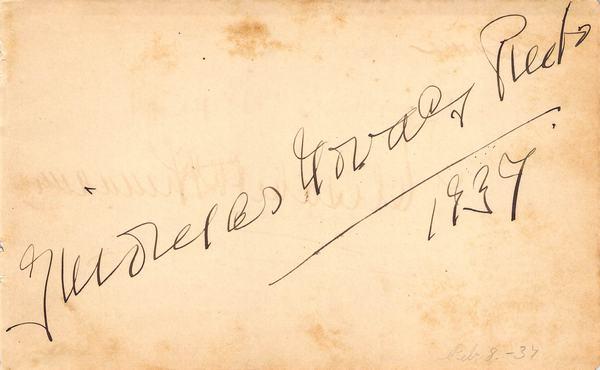 Guiomar Novaes Pinto
1937
Feb 8.-37